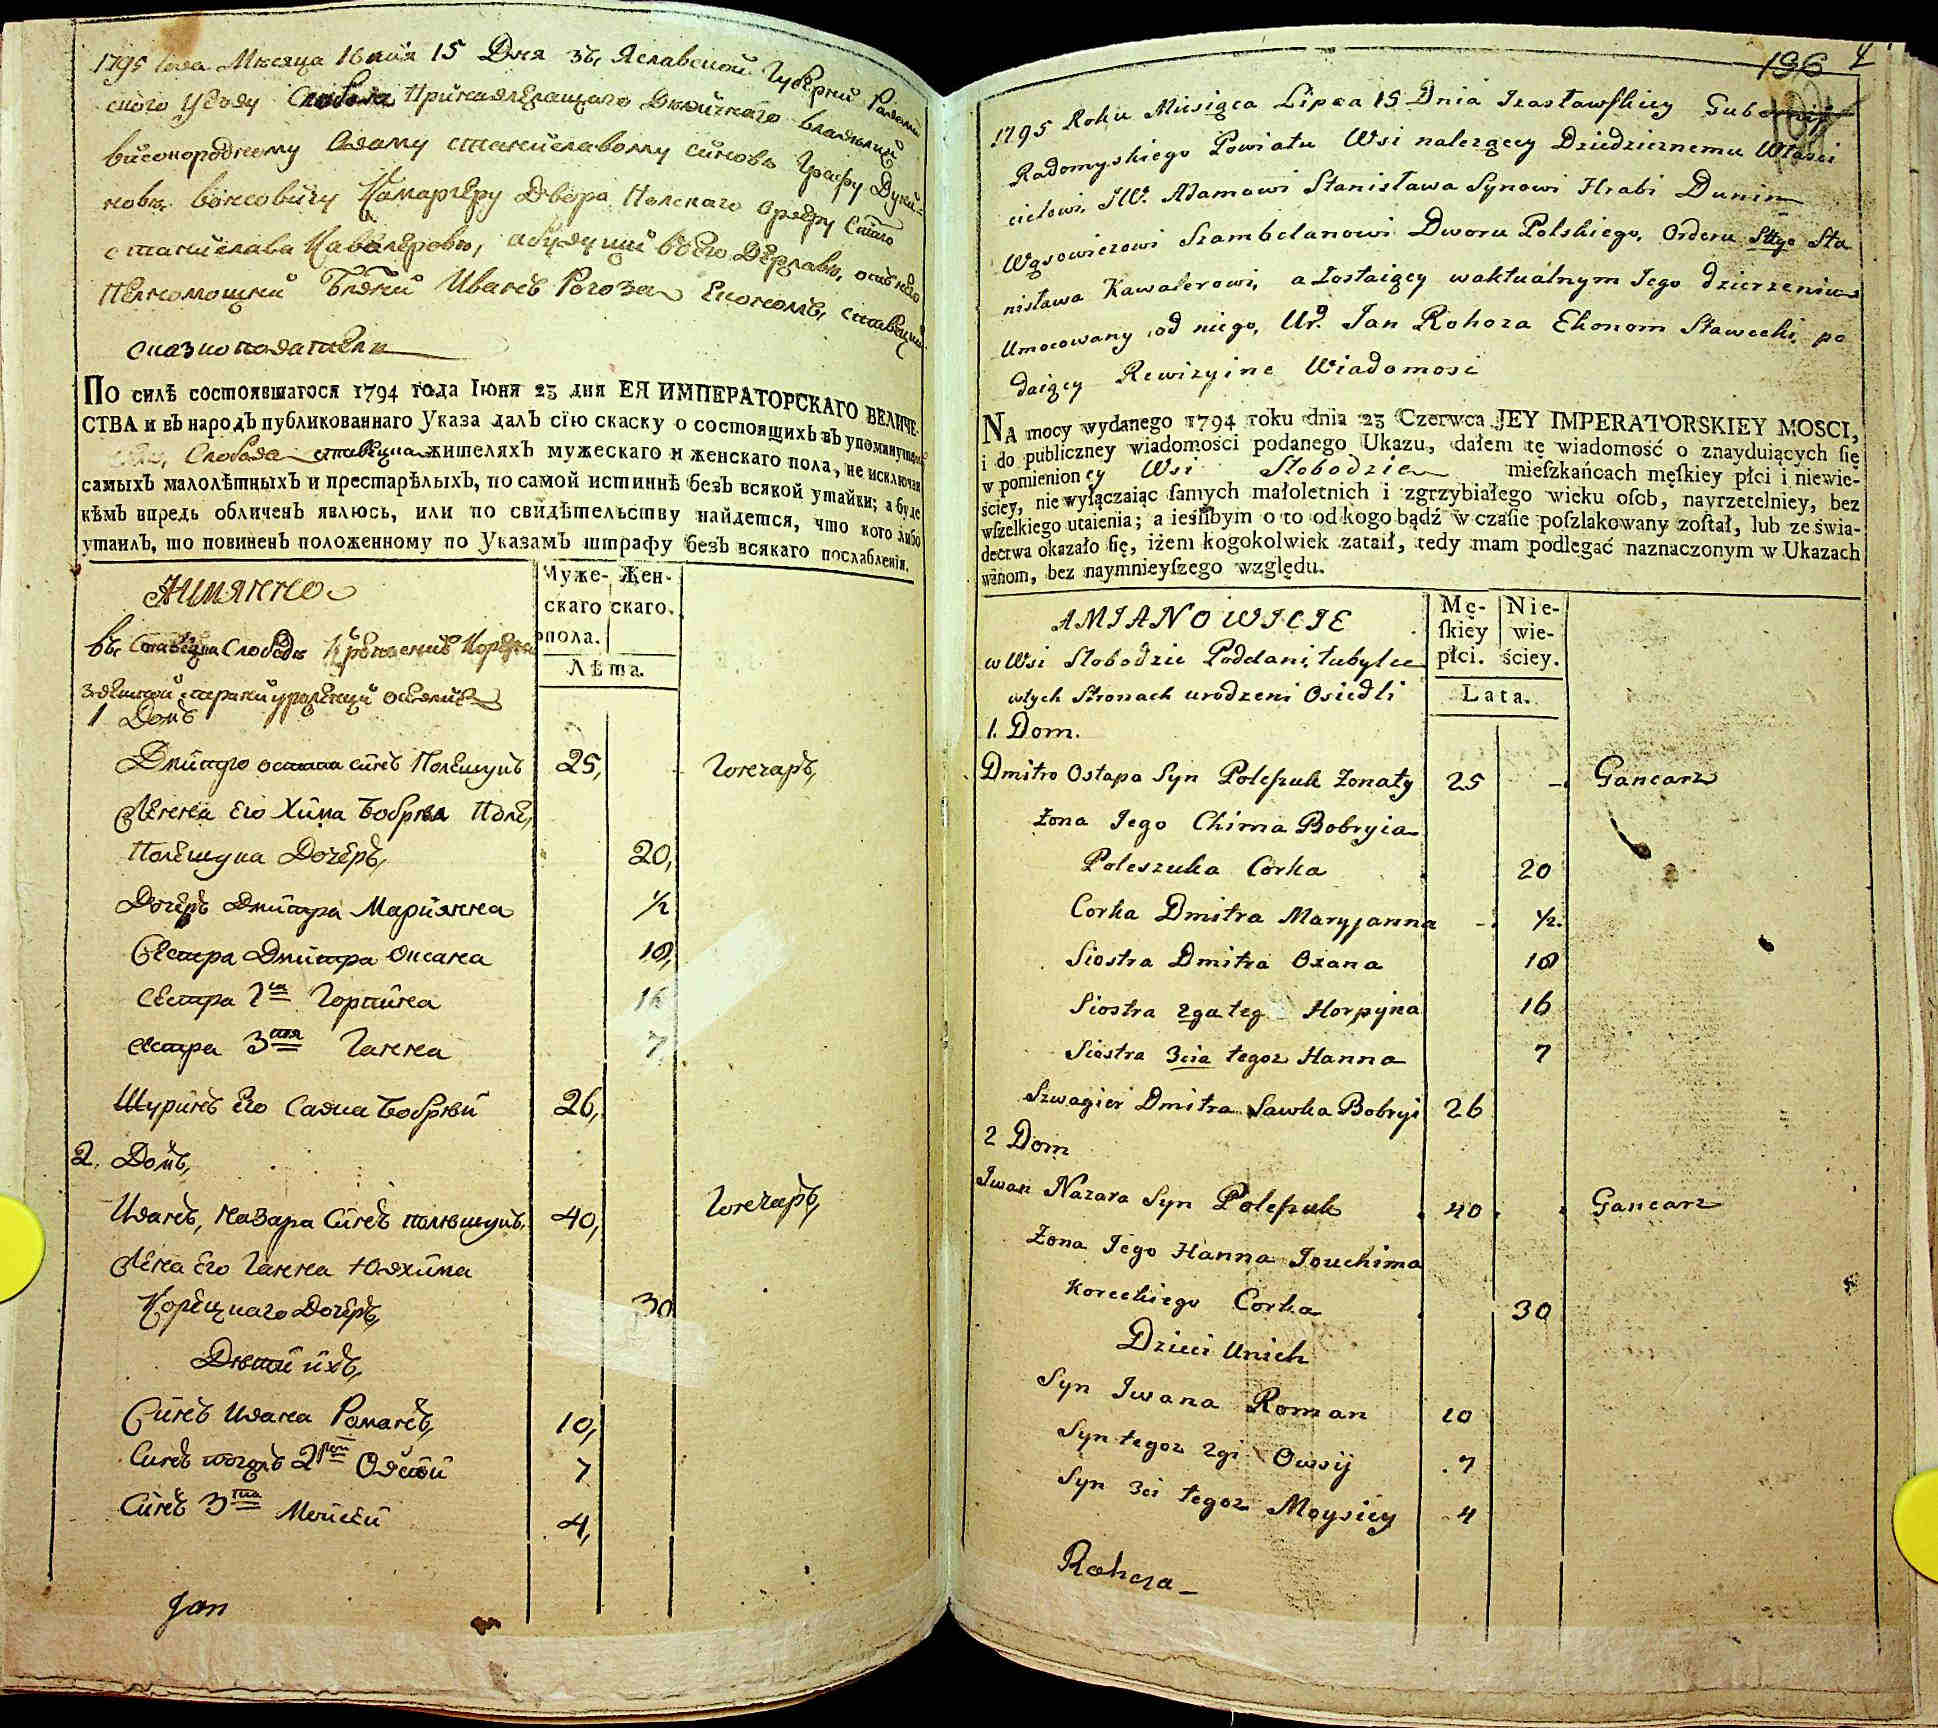 1795 года Мѣсяца Июля 15 Дня Изъ, Яславской Губерни Радоми
ского уезду Слобода Принадлежащаго Дѣдичнаго владѣлца
високородному Адаму станиславому синовѣ Графу Дунѣ=
новѣ вонсовичу Камаргеру Двора Полскаго Ордеру Стаго
станислава Кавалеровѣ, а будущий въ его Державѣ, отъ него
Полномошний Иванъ Рогоза Економъ, ставецкий
сказкоподатель
По силѣ состоявшагося 1794 года Іюня 23 дня ЕЯ ИМПЕРАТОРСКАГО ВЕЛИЧЕ-
СТВА и въ народъ публикованнаго Указа далъ сію скаску о состоящихъ въ упомянутой
Слобода ставецка жителяхъ мужескаго и женскаго пола, не исключая
самыхъ малолѣтныхъ и престарѣлыхъ, по самой истиннѣ безъ всякой утайки; а буде
кѣмъ впредь обличенъ явлюсь, или по свидѣтельству найдется, что кого либо
утаилъ, то повиненъ положенному по Указамъ штрафу безъ всякаго послабленія.
АИМЯННО
Муже- Жен-
скаго скаго.
пола.
Лѣта.
въ Ставецка Слободѣ
здешной сторони урожденци оседлие
1 Домъ
Дмитро остапа синъ Полешукъ 25, Гончаръ,
Женка Его Хима Бобрыя Поле,
Полешука Дочеръ, 20,
Дочеръ Дмитра Марианна 1/2
Сестра Дмитра Оксана 18,
Сестра 2га Горпина 16
сестра 3тая Ганна 7
Шуринъ Его Савка Бобрый 26,
2. Домъ,
Иванъ, назара Синъ полешукъ, 40, Гончаръ,
Жена Его Ганна Юяхима
Корецкаго Дочеръ, 30
Дѣти ихъ,
Синъ Ивана Романъ, 10,
Синъ тогожъ 2рой Овсий 7
Синъ 3тиа Мойсий 4,
Jan
196 4
1795 Roku Miesiąca Lipca 15 Dnia Izasławskiey Gubernij
Radomyskiego Powiatu Wsi należącey Dziedzicznemu Właści
cielowi JW. Adamowi Stanisława Synowi Hrabi Dunin
Wąsowiczowi Szambelanowi Dworu Polskiego, Orderu Sttgo Sta
nisława Kawalerowi, a zostaiącey w aktualnym Jego dzierżeniu
Umocowany od niego, Ur. Jan Rohoza Ekonom Stawecki po
daiący Rewizyine Wiadomosc
NA mocy wydanego 1794 roku dnia 23 Czerwca JEY IMPERATORSKIEY MOSCI,
i do publiczney wiadomości podanego Ukazu, dałem tę wiadomość o znayduiących się
w pomienioney Wsi Słobodzie mieſzkańcach męſkiey płci i niewie-
ściey, nie wyłączaiąc ſamych małoletnich i zgrzybiałego wieku oſob, nayrzetelniey, bez
wſzelkiego utaienia; a ieślibym o to od kogo bądź w czaſie poſzlakowany zoſtał, lub ze świa-
dectwa okazało ſię, iżem kogokolwiek zataił, tedy mam podlegać naznaczonym w Ukazach
winom, bez naymnieyſzego względu.
AMIANOWICIE
Mę- Nie-
ſkiey wie-
płci. ściey.
Lata.
w Wsi Słobodzie Poddani, tubylce
w tych Stronach urodzeni Osiedli
1. Dom.
Dmitro Ostapa Syn Poleszuk żonaty 25 Gancarz
Żona Jego Chima Bobryia
Poleszuka Corka 20
Corka Dmitra Maryjanna 1/2.
Siostra Dmitra Oxana 18
Siostra 2ga teg Horpyna 16
Siostra 3cia tegoz Hanna 7
Szwagier Dmitra Sawka Bobryi 26
2 Dom
Jwan Nazara Syn Poleszuk 40 Gancarz
Żona Jego Hanna Jouchima
Koreckiego Corka 30
Dzieci Unich
Syn Jwana Roman 10
Syn tegoz 2gi Owsij 7
Syn 3ci tegoz Moysiey 4
Rohoza